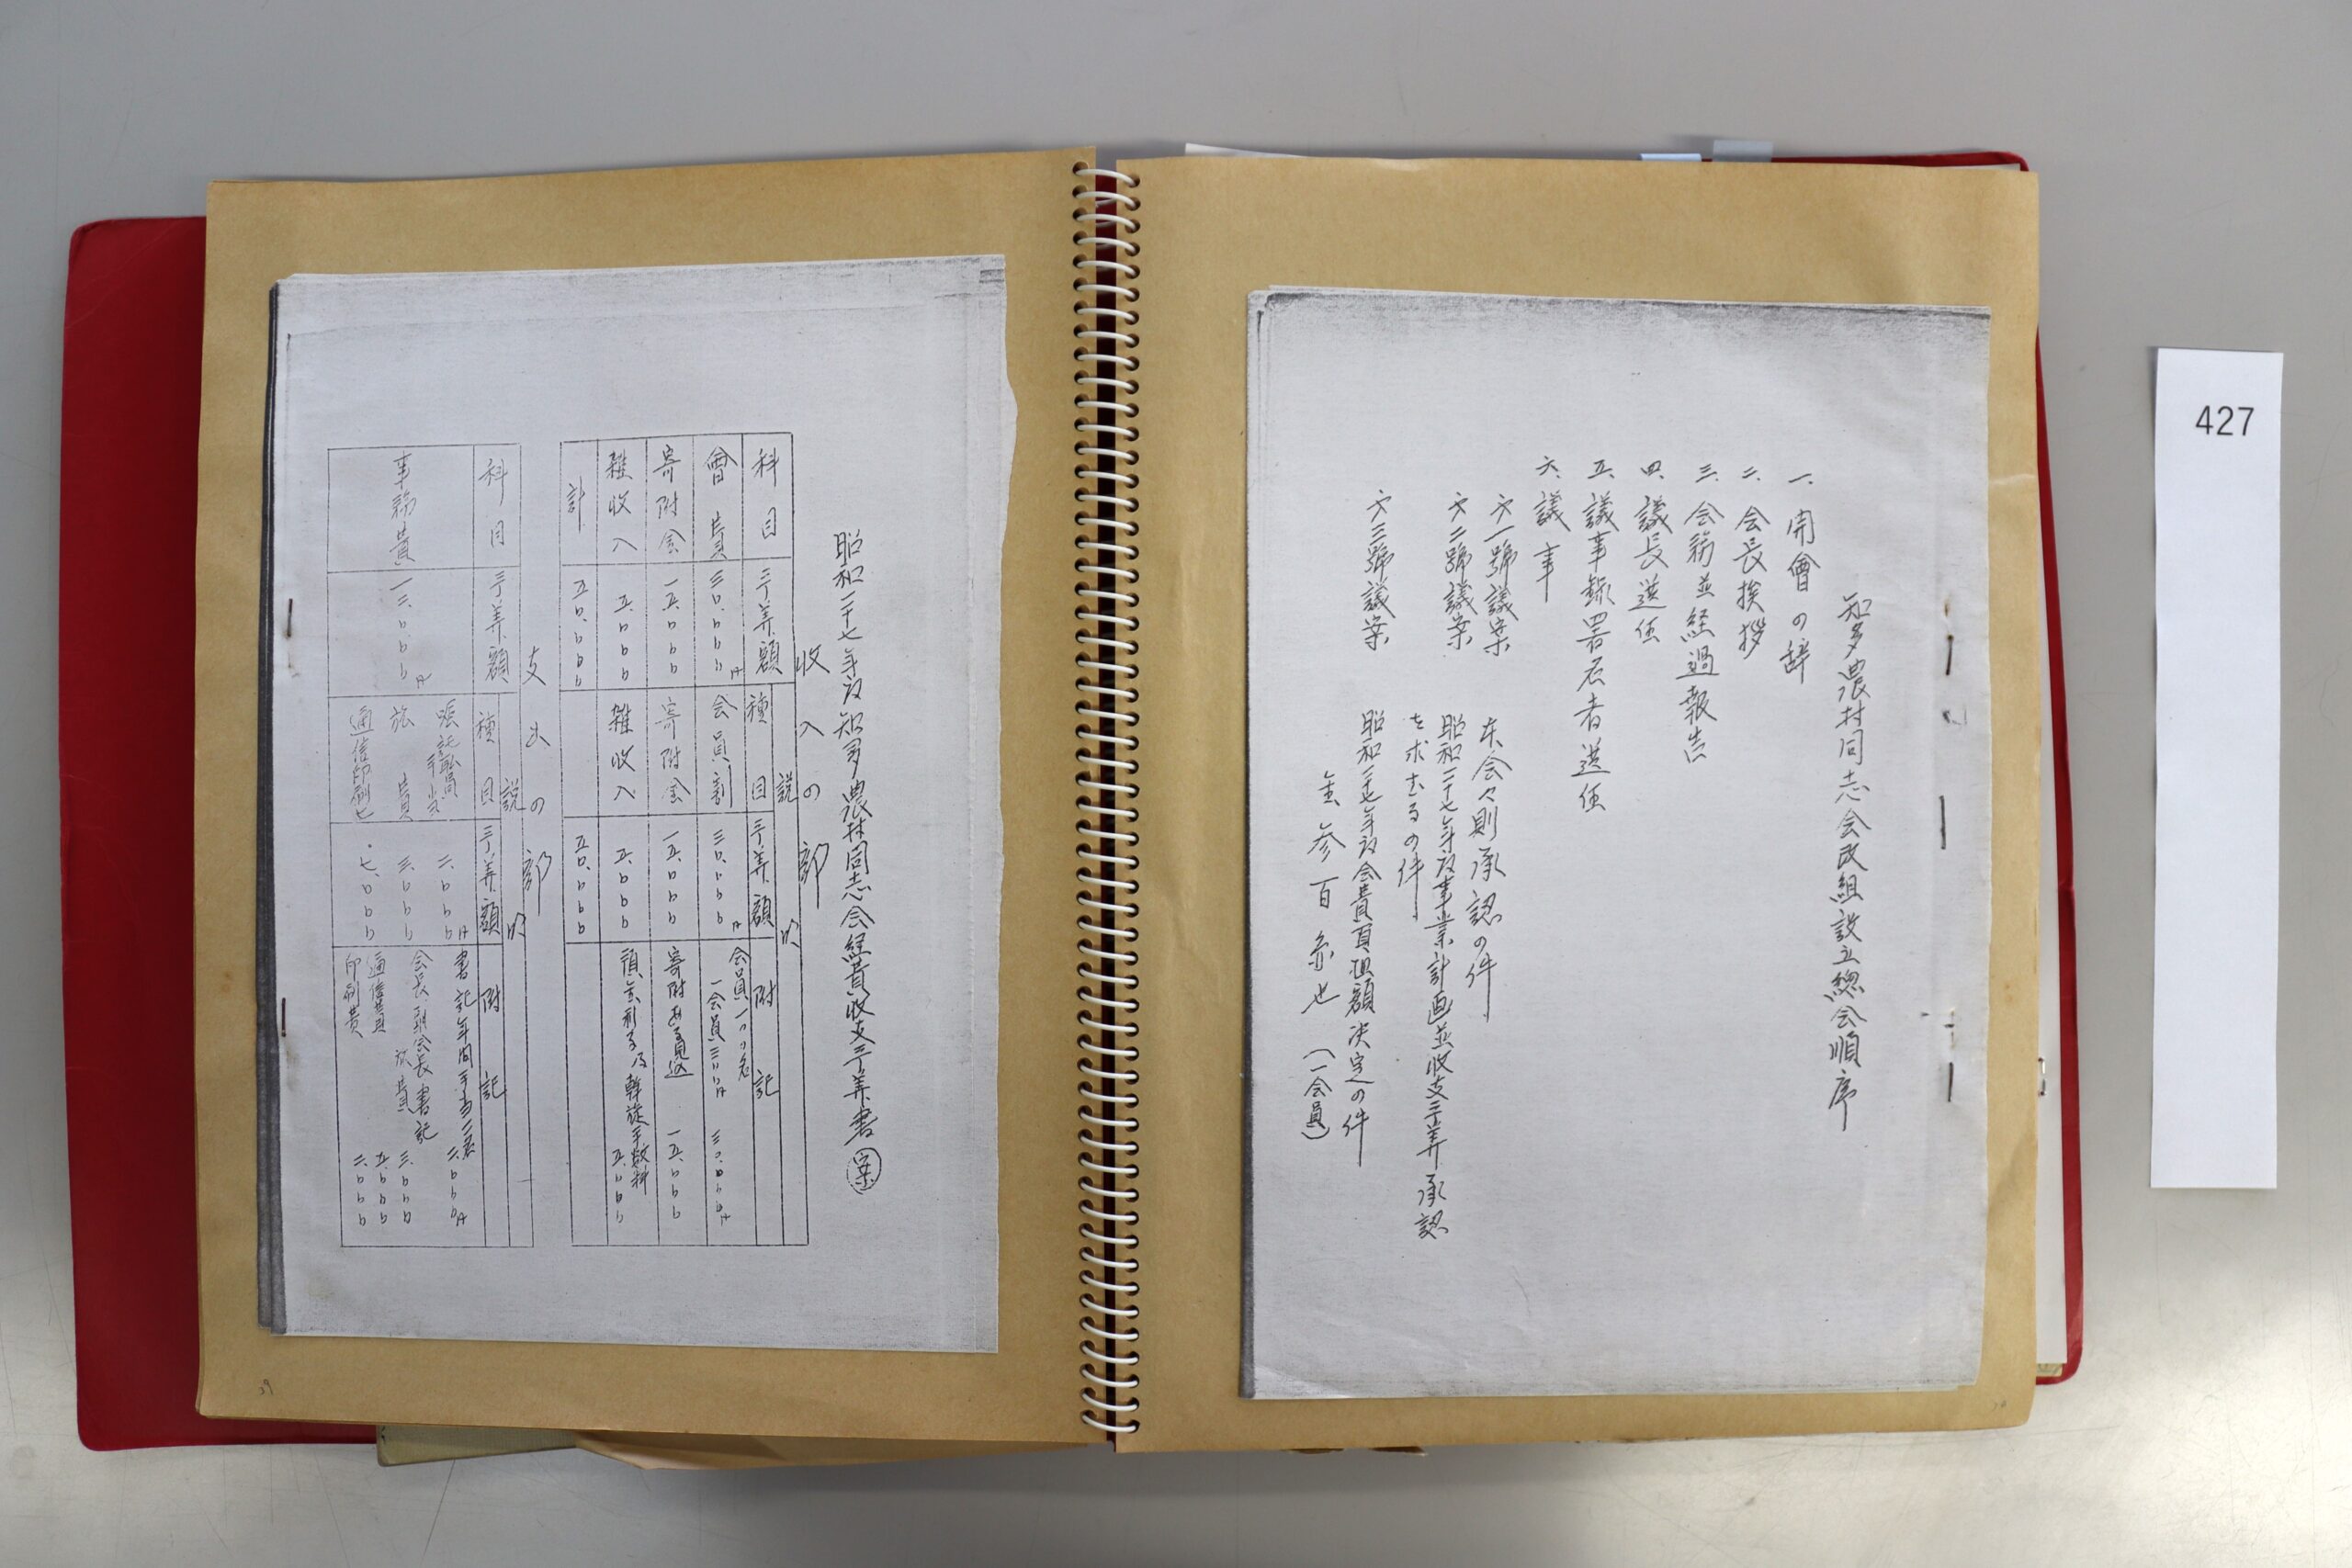 知多農村同志会改組設立總会順序
一、開會の辞
二、会長挨拶
三、会務並経過報告
四、議長選任
五、議事録署名者選任
六、議事
才一號議案 本会々則承認の件
才二號議案 昭和二十七年度事業計画並収支予算承認
を求むるの件
才三號議案 昭和二十七年度会費負担額決定の件
金参百糸也(一会員)
427
昭和二十七年度知多農村同志会経費収支予算書 案
収入の部
科目 予算額 説明
種目 予算額 附記
會費 三〇、〇〇〇円 会員割 三〇、〇〇〇円 会員一〇〇名
一会員三〇〇円 三〇、〇〇〇円
寄附金 一五、〇〇〇 寄附金 一五、〇〇〇 寄附金見込 一五、〇〇〇
雑収入 五、〇〇〇 雑収入 五、〇〇〇 預金利子及斡旋手数料 五、〇〇〇
計 五〇、〇〇〇 五〇、〇〇〇
支出の部
科目 予算額 説明
種目 予算額 附記
事務費 一二、〇〇〇円 嘱託職員手当 二、〇〇〇円 書記年間手当 二、〇〇〇円
旅費 三、〇〇〇 会長副会長書記
旅費 三、〇〇〇
通信印刷費 七、〇〇〇 通信費 五、〇〇〇
印刷費 二、〇〇〇
39